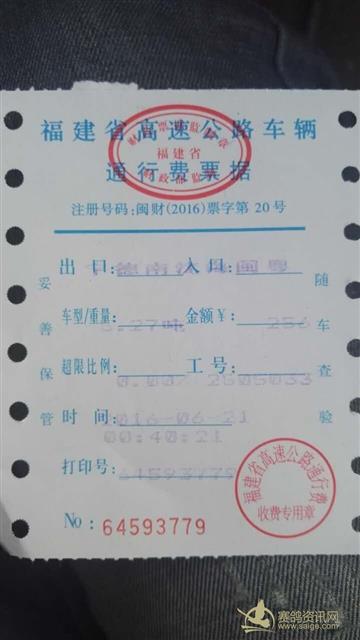 福建省高速公路车辆
通行费票据
福建省
注册号码:闽财(2016)票字第20号
出口: 宁德南 入口: 闽粤
车型/重量: 5.27吨 金额¥: 256
超限比例: 0.00% 工号: 2505033
时间: 2016-06-21
00:40:21
打印号: 64593779
No: 64593779
妥善保管
随车查验
福建省高速公路通行费
收费专用章
赛鸽资讯网
www.saige.com